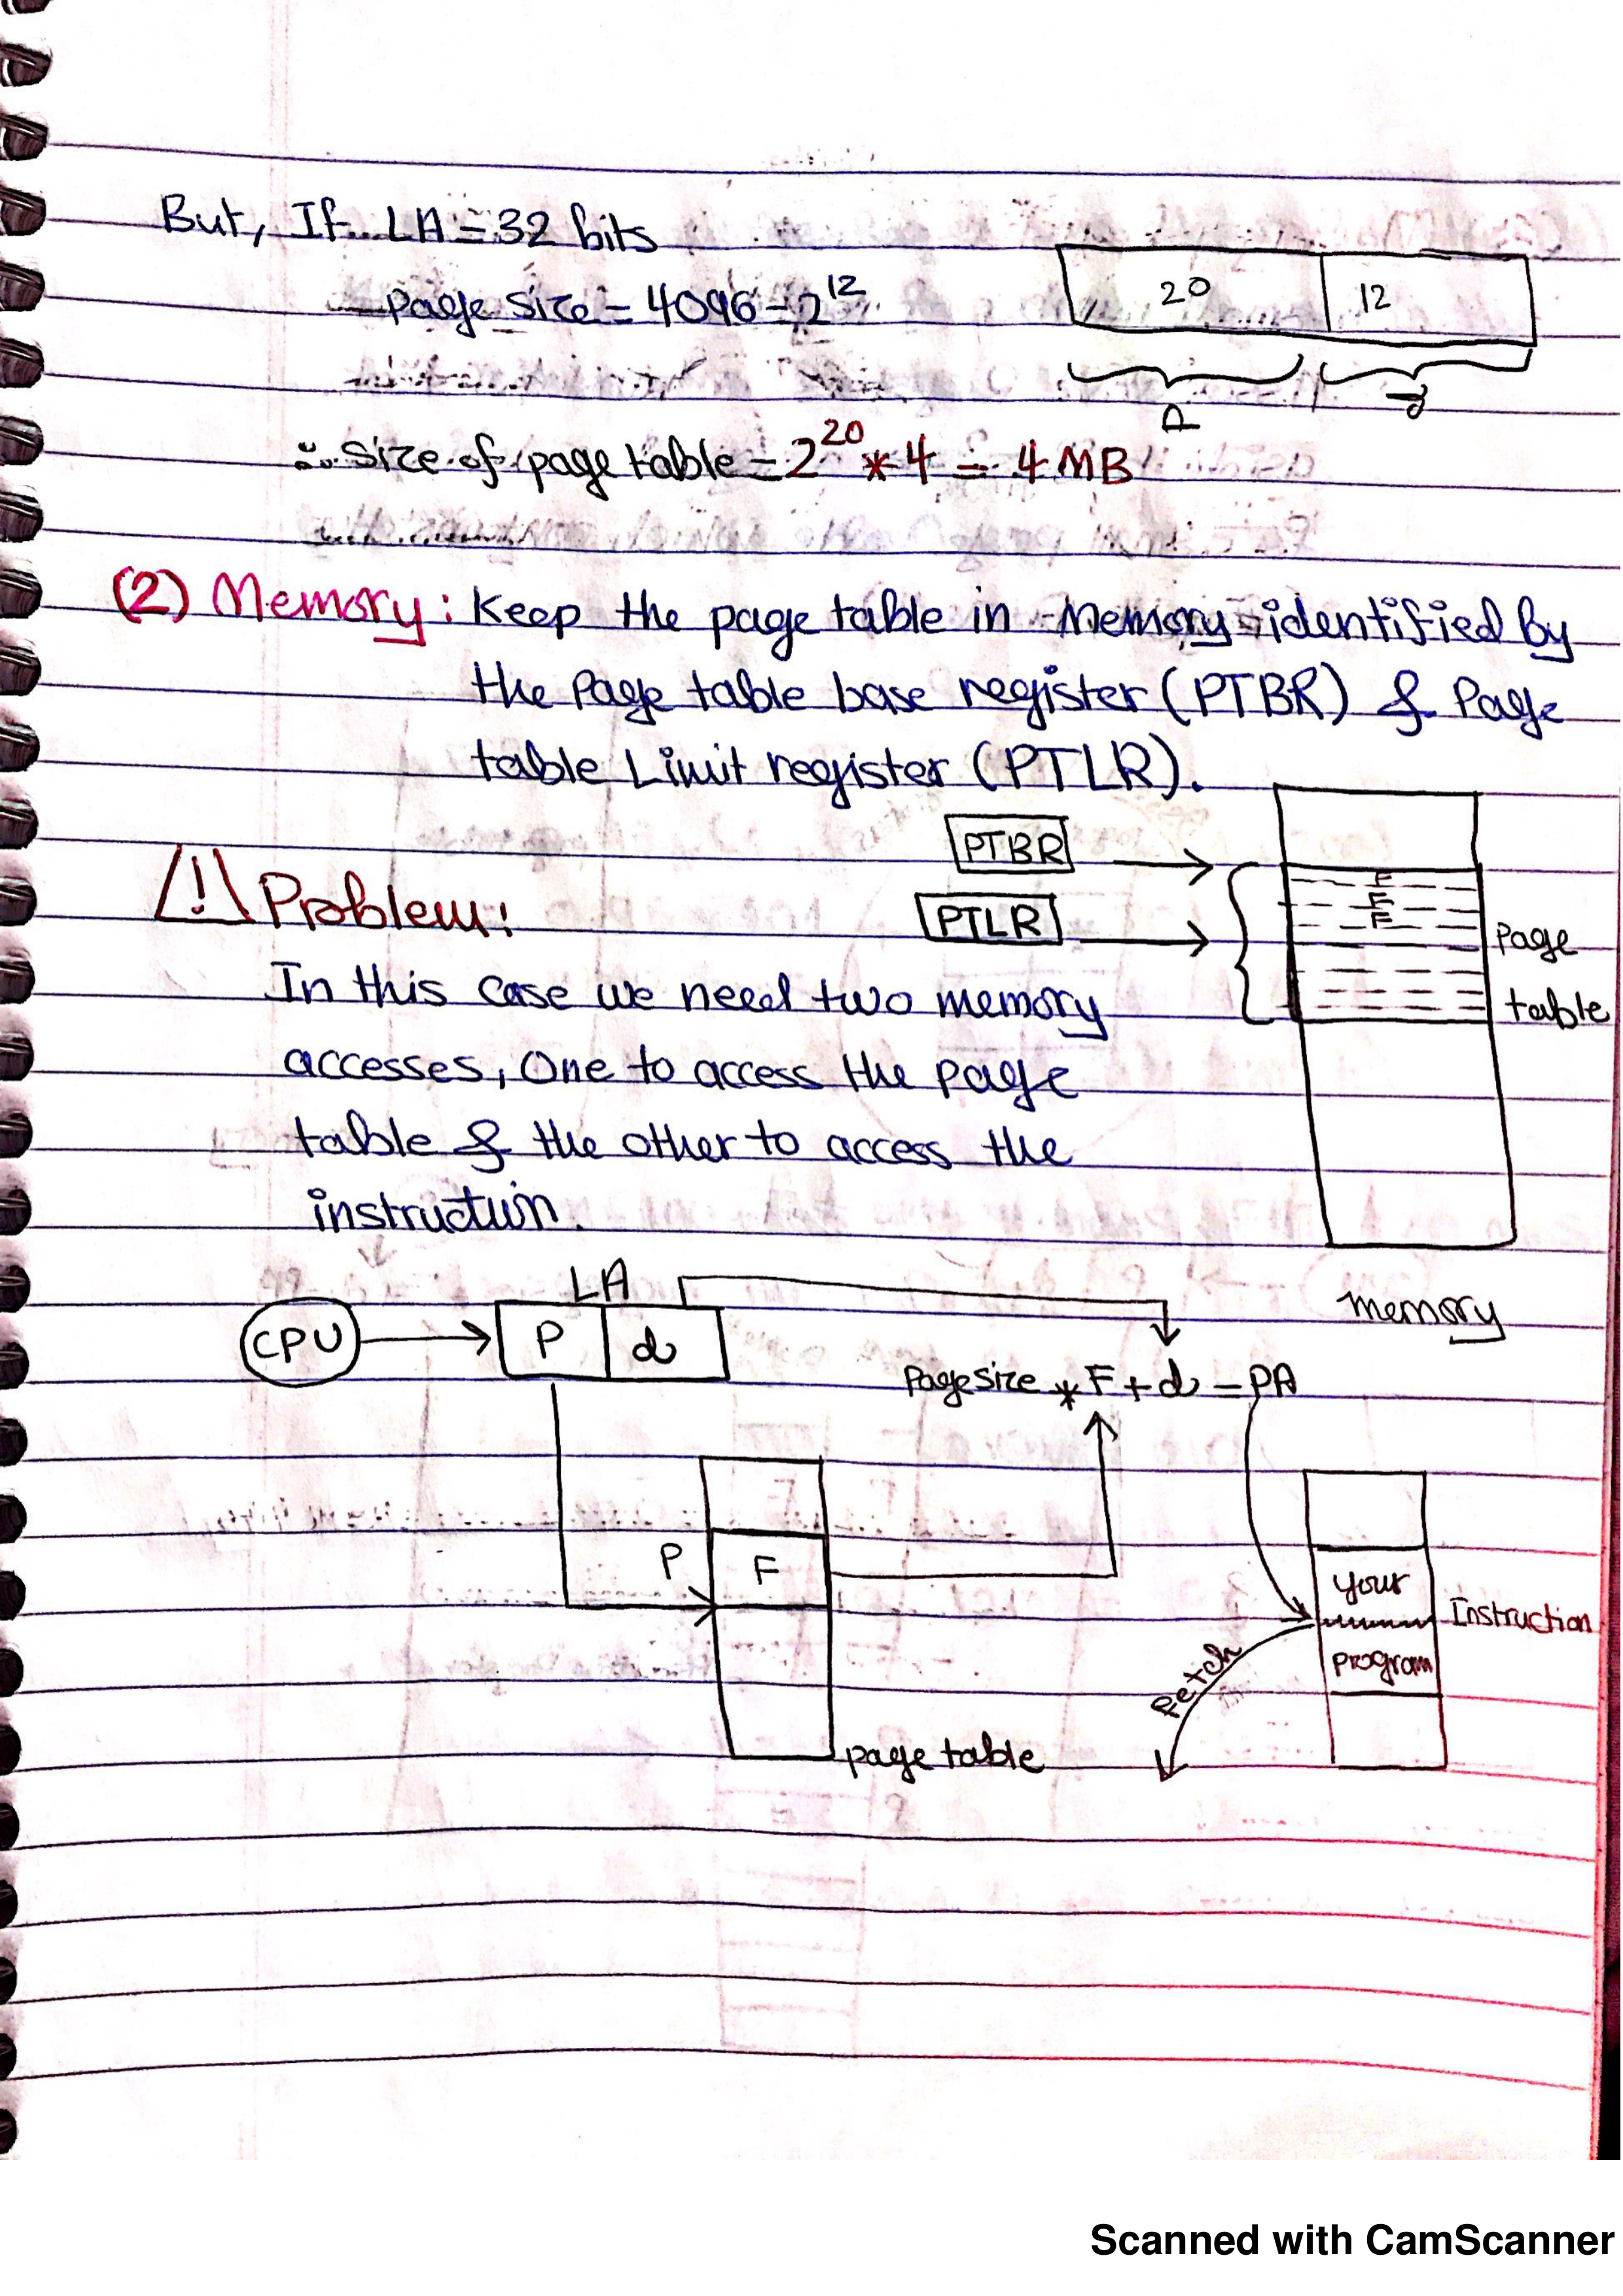 But, If LA = 32 bits
Page Size = 4096 = 2^12
20 12
P d
∴ Size of page table = 2^20 * 4 = 4 MB
(2) Memory: Keep the page table in Memory identified by
the Page table base register (PTBR) & Page
table Limit register (PTLR).
PTBR
PTLR
F
F
F
Page
table
memory
⚠ Problem:
In this case we need two memory
accesses, One to access the page
table & the other to access the
instruction.
LA
CPU P d
Page Size * F + d = PA
P F
page table
your
program
Instruction
Fetch
Scanned with CamScanner